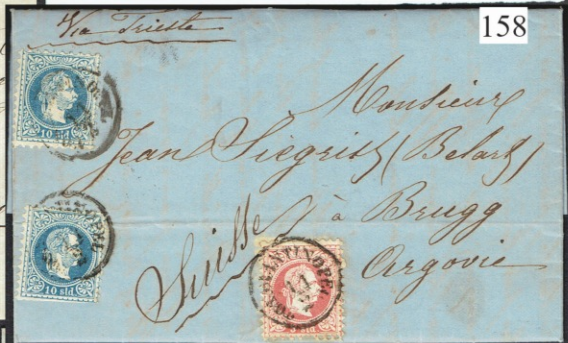 158
Via Trieste
10 Pts
Monsieur
Jean Siegrist (Belart)
à Brugg
Suisse
Argovie
10 Pts
CONSTANTINOPEL